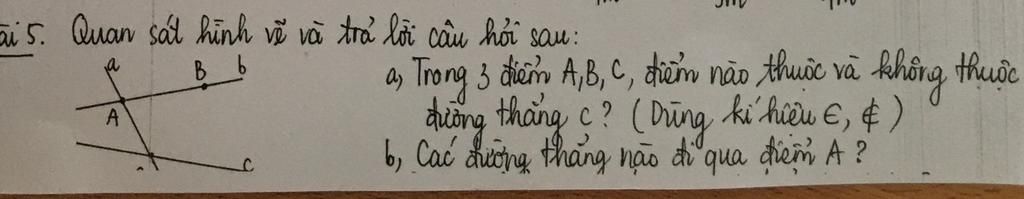 ài 5. Quan sát hình vẽ và trả lời câu hỏi sau:
a
B
b
A
c
a, Trong 3 điểm A, B, C, điểm nào thuộc và không thuộc
đường thẳng c? (Dùng kí hiệu ∈, ∉)
b, Các đường thẳng nào đi qua điểm A?